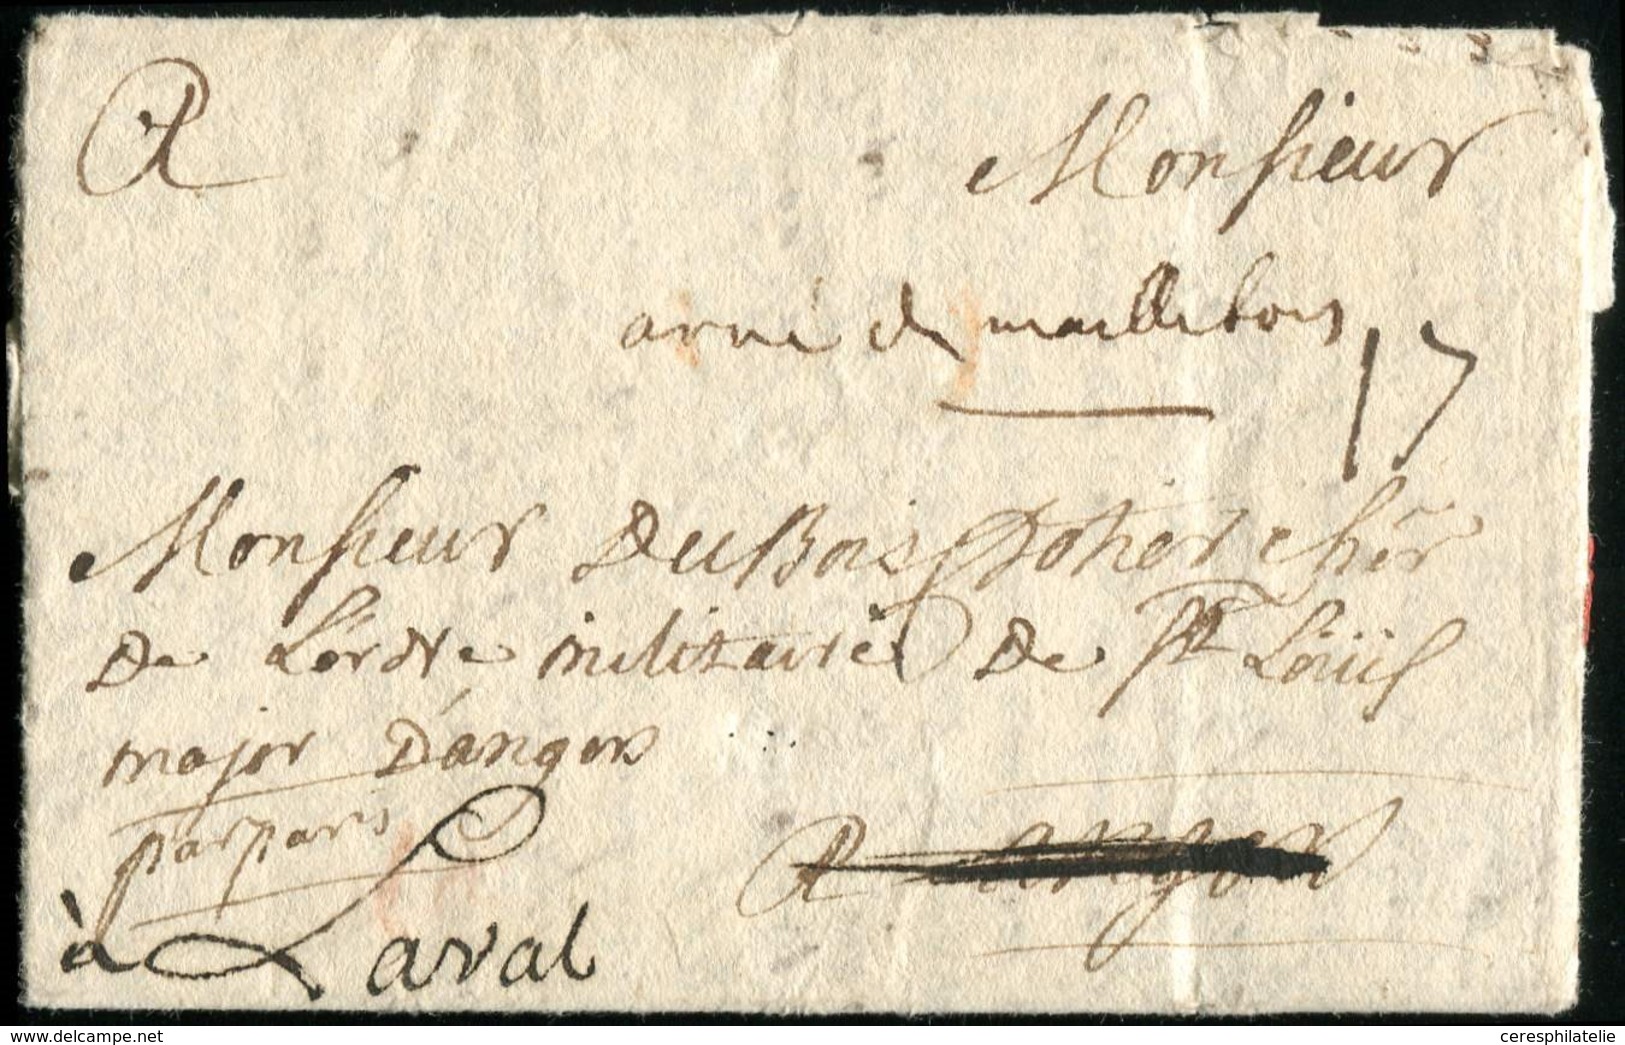 A Monsieur
armé de maillebois
17
Monsieur DuBois chër
De L'ordre militaire De St Loüis
major D'angers
par paris
A angers
à Laval
www.delcampe.net
ceresphilatelie